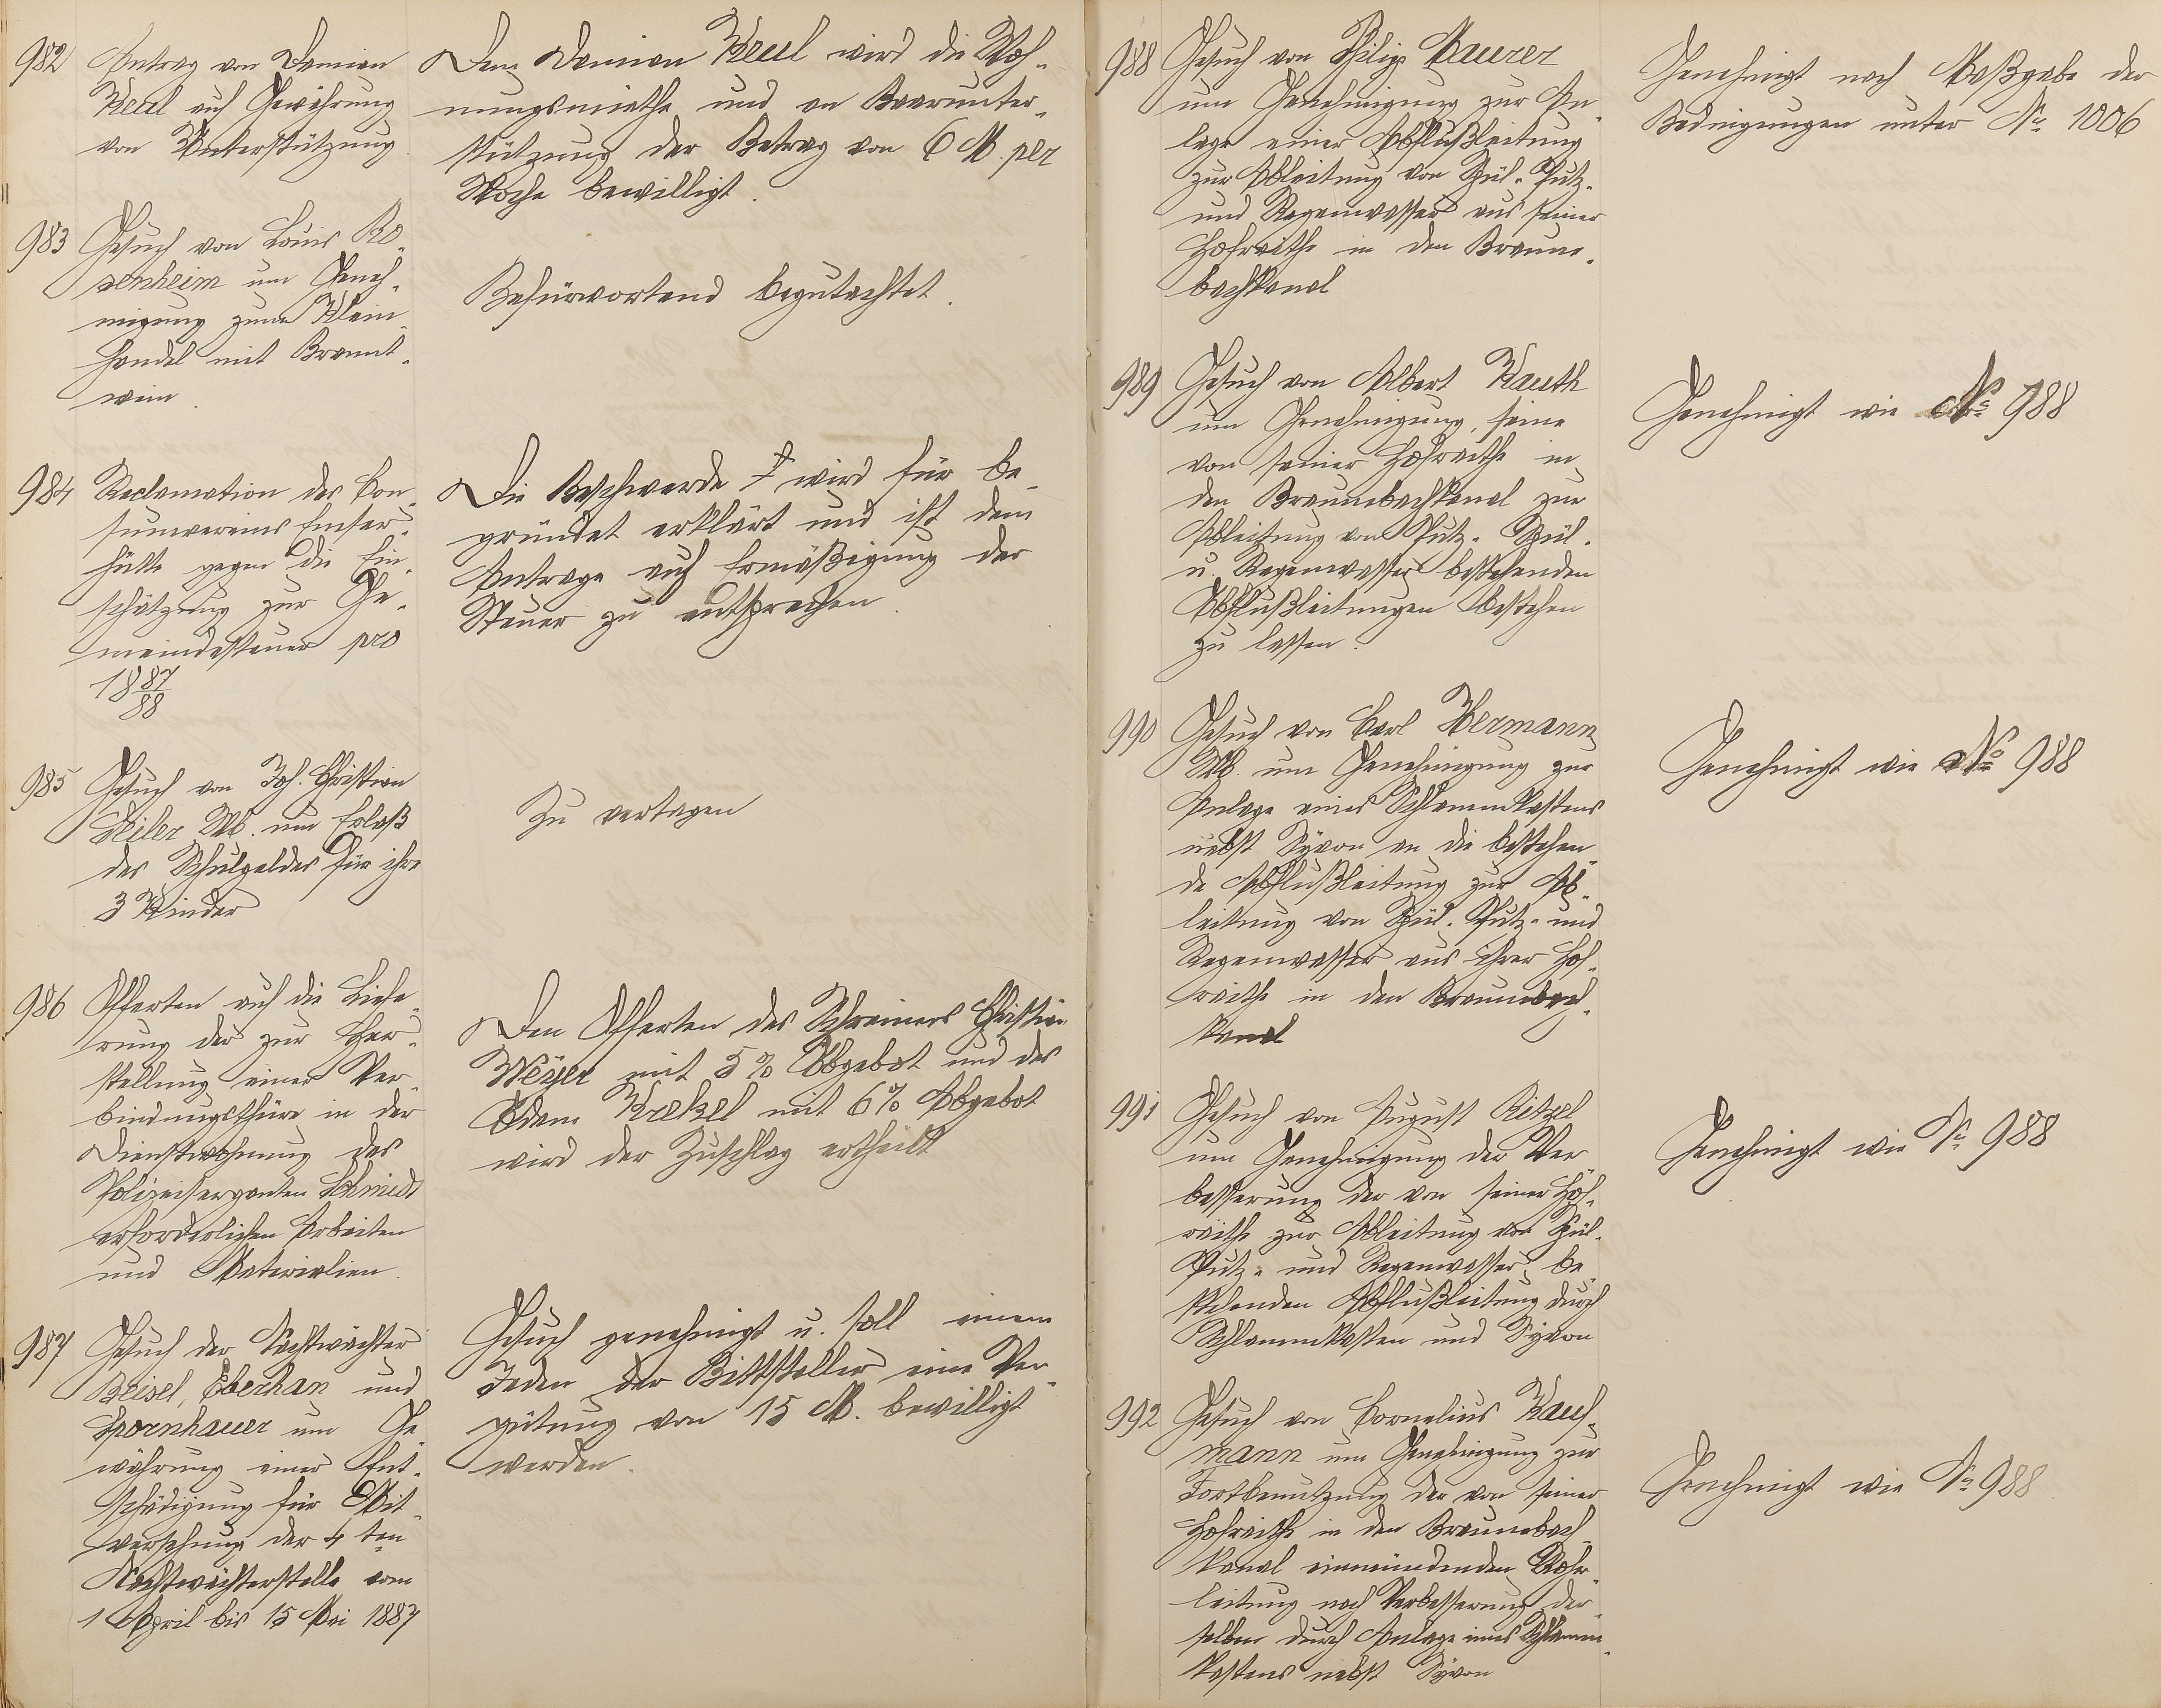 982 Antrag von Damian
Keul auf Gewährung
von Unterstützung
Dem Damian Keul wird die Woh-
nungsmiethe und an Baarunter-
stützung der Betrag von 6 M. per
Woche bewilligt.
983 Gesuch von Louis Ro-
senheim um Geneh-
migung zum Klein-
handel mit Brannt-
wein.
Befürwortend begutachtet.
984 Reclamation des Con-
sumvereins Emser-
hütte gegen die Ein-
schätzung zur Ge-
meindesteuer pro
1887/88
Die Beschwerde wird für be-
gründet erklärt und ist dem
Antrage auf Ermäßigung der
Steuer zu entsprechen.
985 Gesuch von Joh. Christian
Wb. um Erlaß
des Schulgeldes für ihre
3 Kinder
Zu vertagen
986 Offerten auf die Liefe-
rung der zur Her-
stellung einer Ver-
bindungsthüre in der
Dienstwohnung des
Polizeiserganten Schmidt
erforderlichen Arbeiten
und Materialien.
Den Offerten des Schreiners Christian
Meÿer mit 5% Abgebot und des
Adam Krekel mit 6% Abgebot
wird der Zuschlag ertheilt
987 Gesuch der Nachtwächter
Beisel, Eberhan und
Spornhauer um Ge-
währung einer Ent-
schädigung für Mit-
versehung der 4 ten
Nachtwächterstelle vom
1 April bis 15 Mai 1887
Gesuch genehmigt u. soll einem
Jeden der Bittsteller eine Ver-
gütung von 15 M. bewilligt
werden.
988 Gesuch von Philip Maurer
um Genehmigung zur An-
lage einer Abflußleitung
zur Ableitung von Spül- Putz-
und Regenwasser aus seiner
Hofraithe in den Braune-
bachkanal
Genehmigt nach Maßgabe der
Bedingungen unter No. 1006
989 Gesuch von Albert Kauth
um Genehmigung, seine
von seiner Hofraithe in
den Braunebachkanal zur
Ableitung von Putz- Spül-
u. Regenwasser bestehenden
Abflußleitungen bestehen
zu lassen.
Genehmigt wie No. 988
990 Gesuch von Carl Hermann
Wb. um Genehmigung zur
Anlage eines Schlammkastens
nebst Sÿvon an die bestehen-
de Abflußleitung zur Ab-
leitung von Spül- Putz- und
Regenwasser aus ihrer Hof-
raithe in den Braunebach-
kanal
Genehmigt wie No. 988
991 Gesuch von August Ritzel
um Genehmigung der Ver-
besserung der von seiner Hof-
raithe zur Ableitung von Spül-
Putz- und Regenwasser be-
stehenden Abflußleitung durch
Schlammkasten und Sÿvon
Genehmigt wie No. 988
992 Gesuch von Cornelius Kauf-
mann um Genehmigung zur
Fortbenutzung der von seiner
Hofraithe in den Braunebach-
kanal einmündenden Rohr-
leitung nach Verbesserung der-
selben durch Anlage eines Schlamm-
kastens nebst Sÿvon
Genehmigt wie No. 988